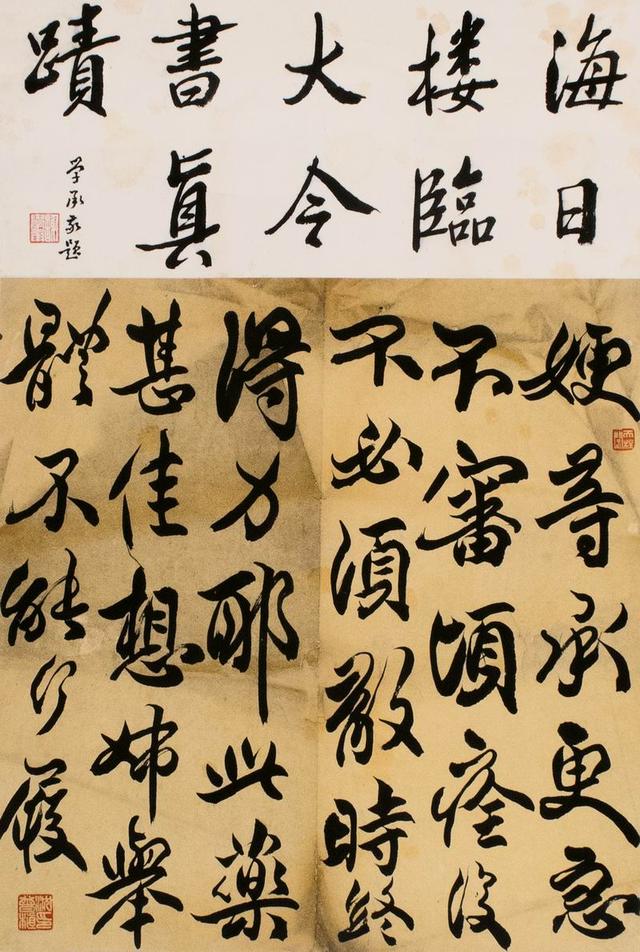 海日
楼臨
大令
書真
蹟
学承敬题
㛐等承更惡
不審頃痊復
不必須散時終
得力耶此藥
甚佳想姊舉
體不能行履